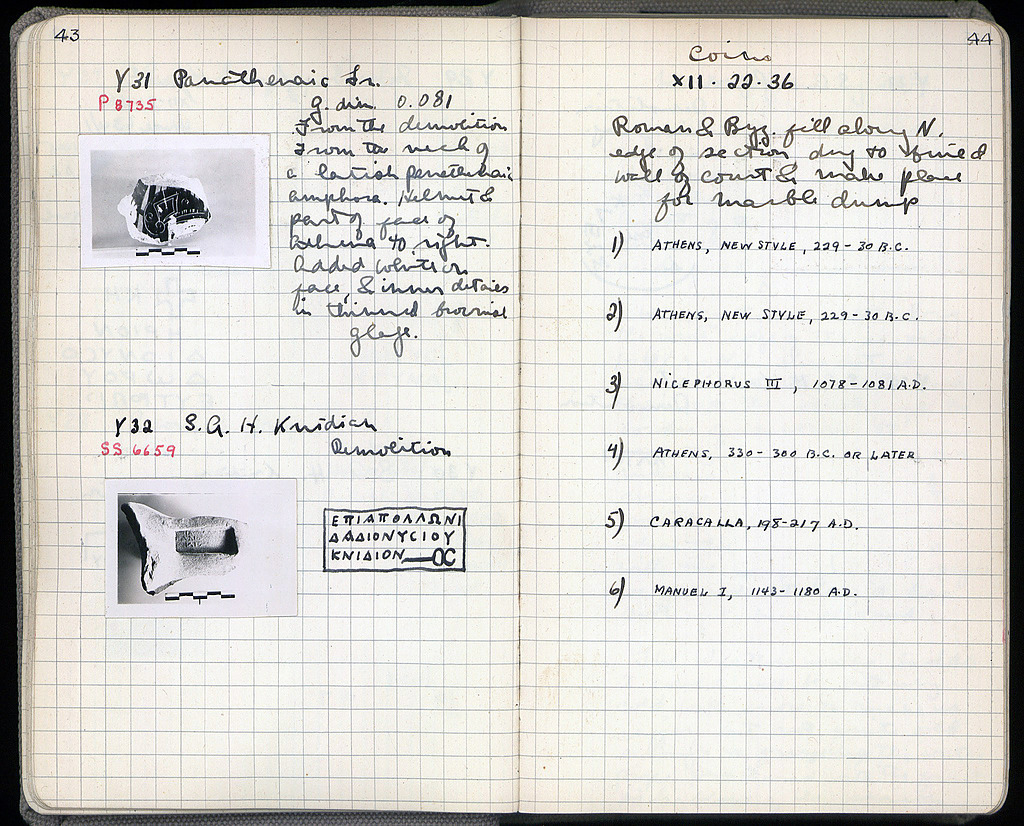 43
Y31 Panathenaic Fr.
P 8735
g. dim. 0.081
From the demolition
From the neck of
a latish panathenaic
amphora. Helmet &
part of face of
Athena to right.
Added white on
face, & inner details
in thinned brownish
glaze.
Y32 S.A.H. Knidian
SS 6659
Demolition
ΕΠΙΑΠΟΛΛΩΝΙ
ΔΑΔΙΟΝΥCΙΟΥ
ΚΝΙΔΙΟΝ
44
Coins
XII-22-36
Roman & Byz. fill along N.
edge of section dug to find
wall of court & make place
for marble dump
1) ATHENS, NEW STYLE, 229-30 B.C.
2) ATHENS, NEW STYLE, 229-30 B.C.
3) NICEPHORUS III, 1078-1081 A.D.
4) ATHENS, 330-300 B.C. OR LATER
5) CARACALLA, 198-217 A.D.
6) MANUEL I, 1143-1180 A.D.